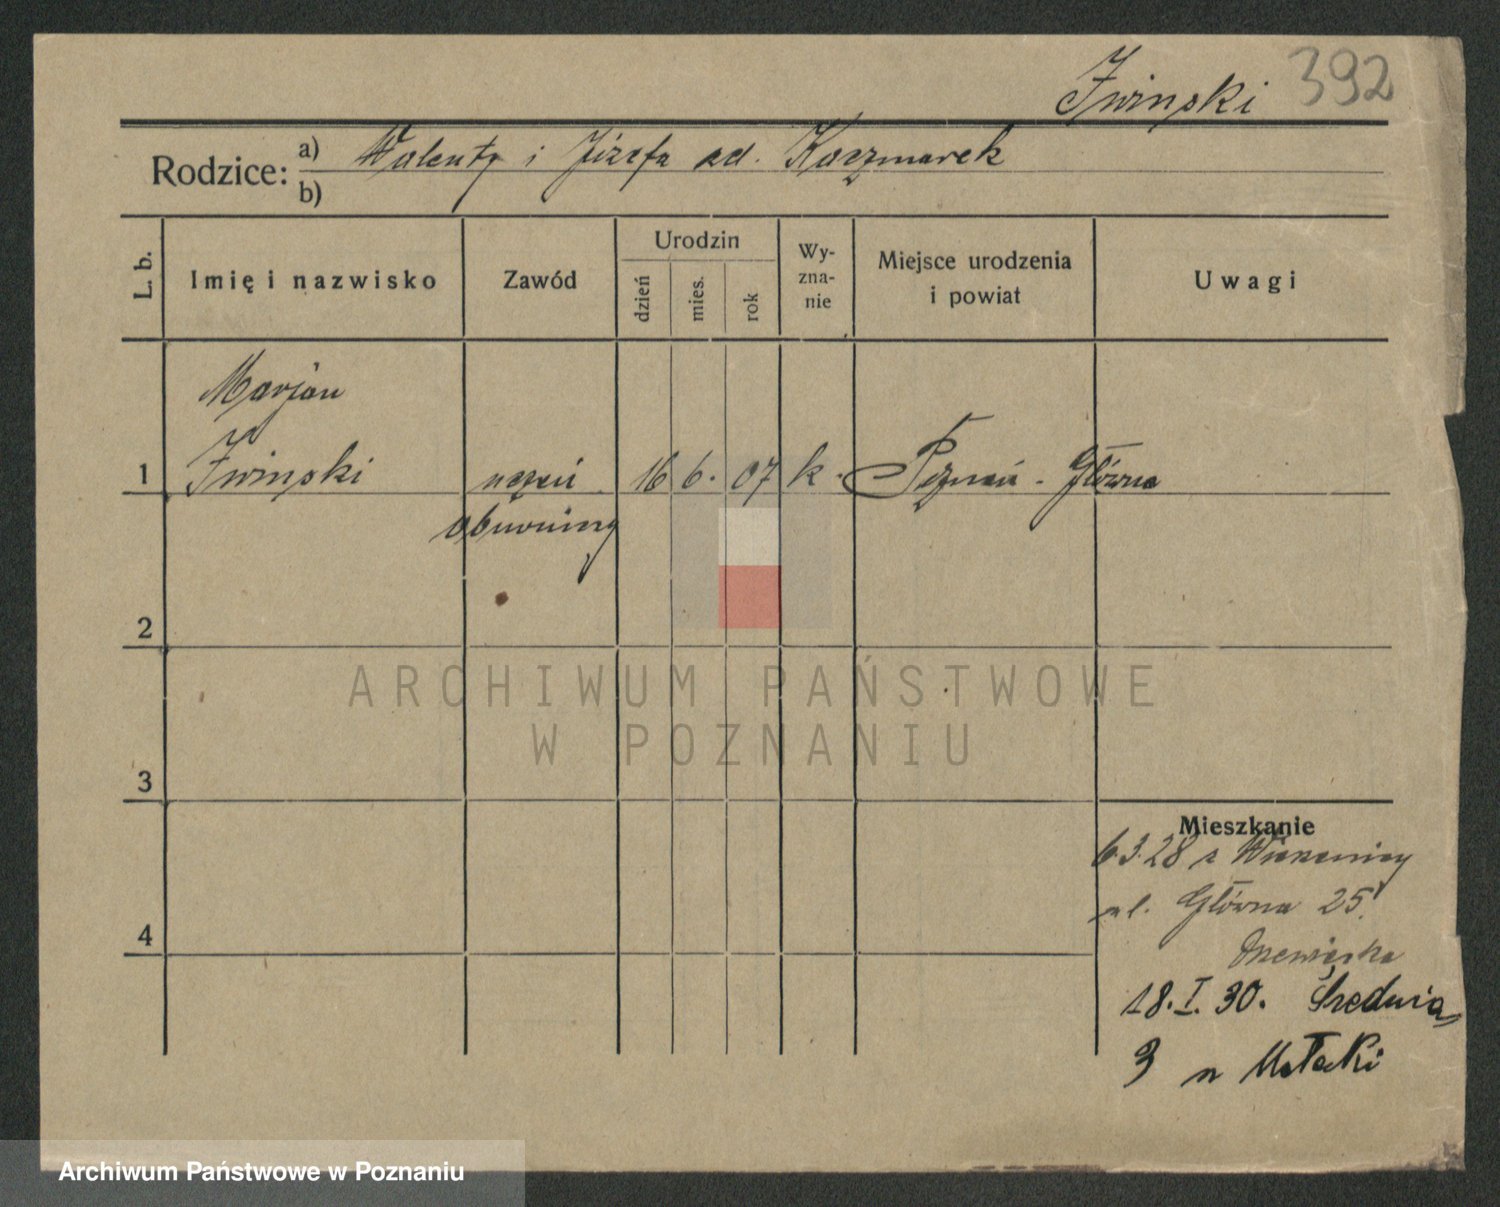 Iwinski 392
Rodzice: a) Walenty i Józefa zd. Kaczmarek
b)
L. b.
Imię i nazwisko
Zawód
Urodzin
dzień
mies.
rok
Wy-
zna-
nie
Miejsce urodzenia
i powiat
Uwagi
Marjan
1 Iwinski uczeń 16 6. 07 k. Poznań - Główna
obuwniczy
2
3
4
Mieszkanie
6.3.28 z
ul. Główna 25.
18.I.30. Średnia
3 n Małecki
ARCHIWUM PAŃSTWOWE
W POZNANIU
Archiwum Państwowe w Poznaniu